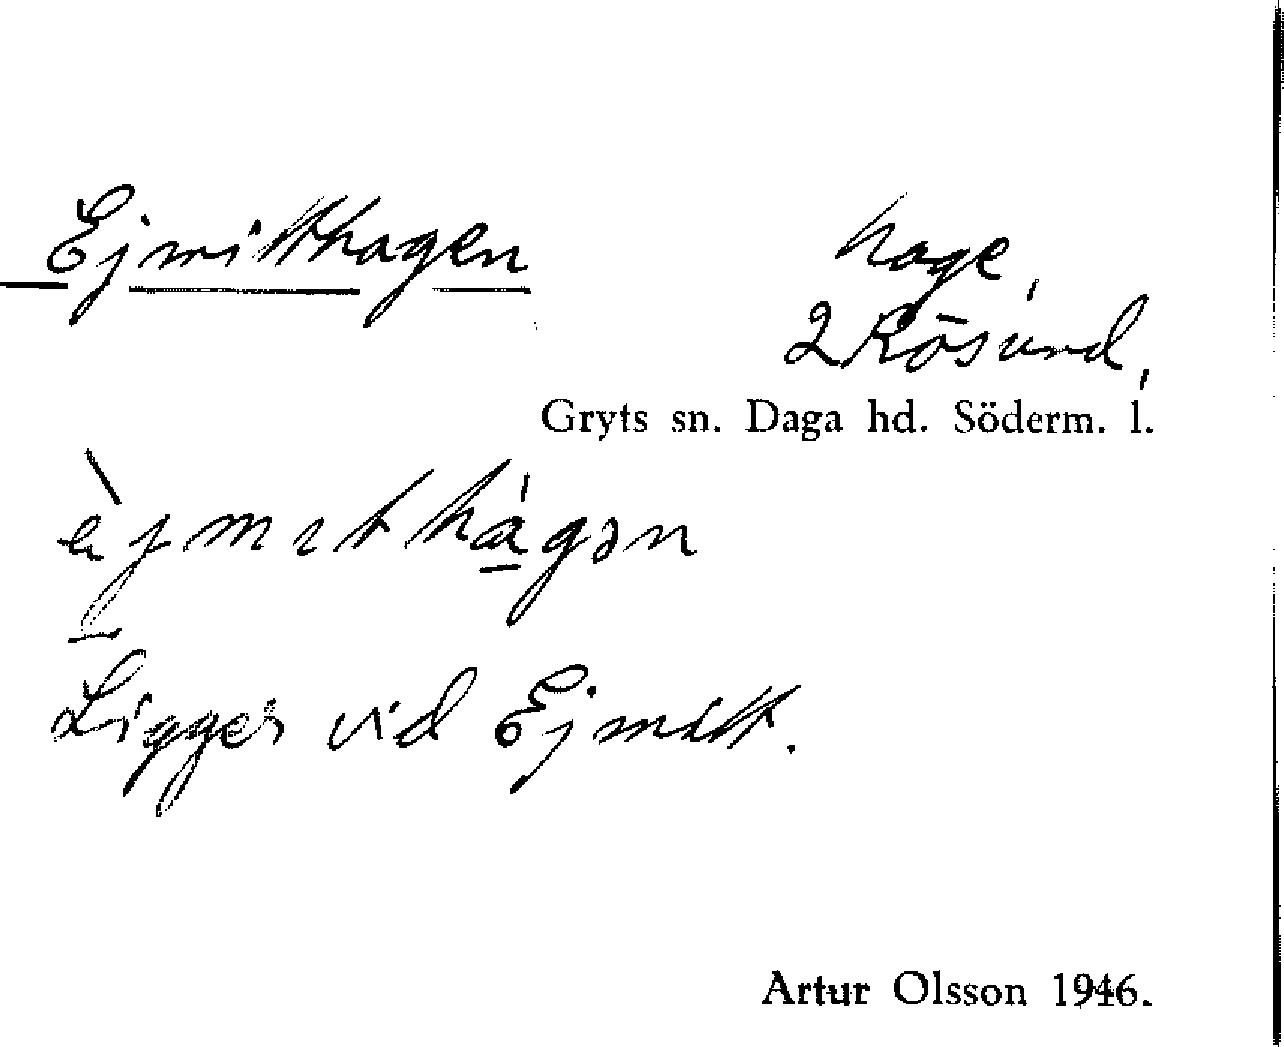 Ejmitthagen
hage,
2 Rösund,
Gryts sn. Daga hd. Söderm. l.
Ligger vid Ejmitt.
Artur Olsson 1946.